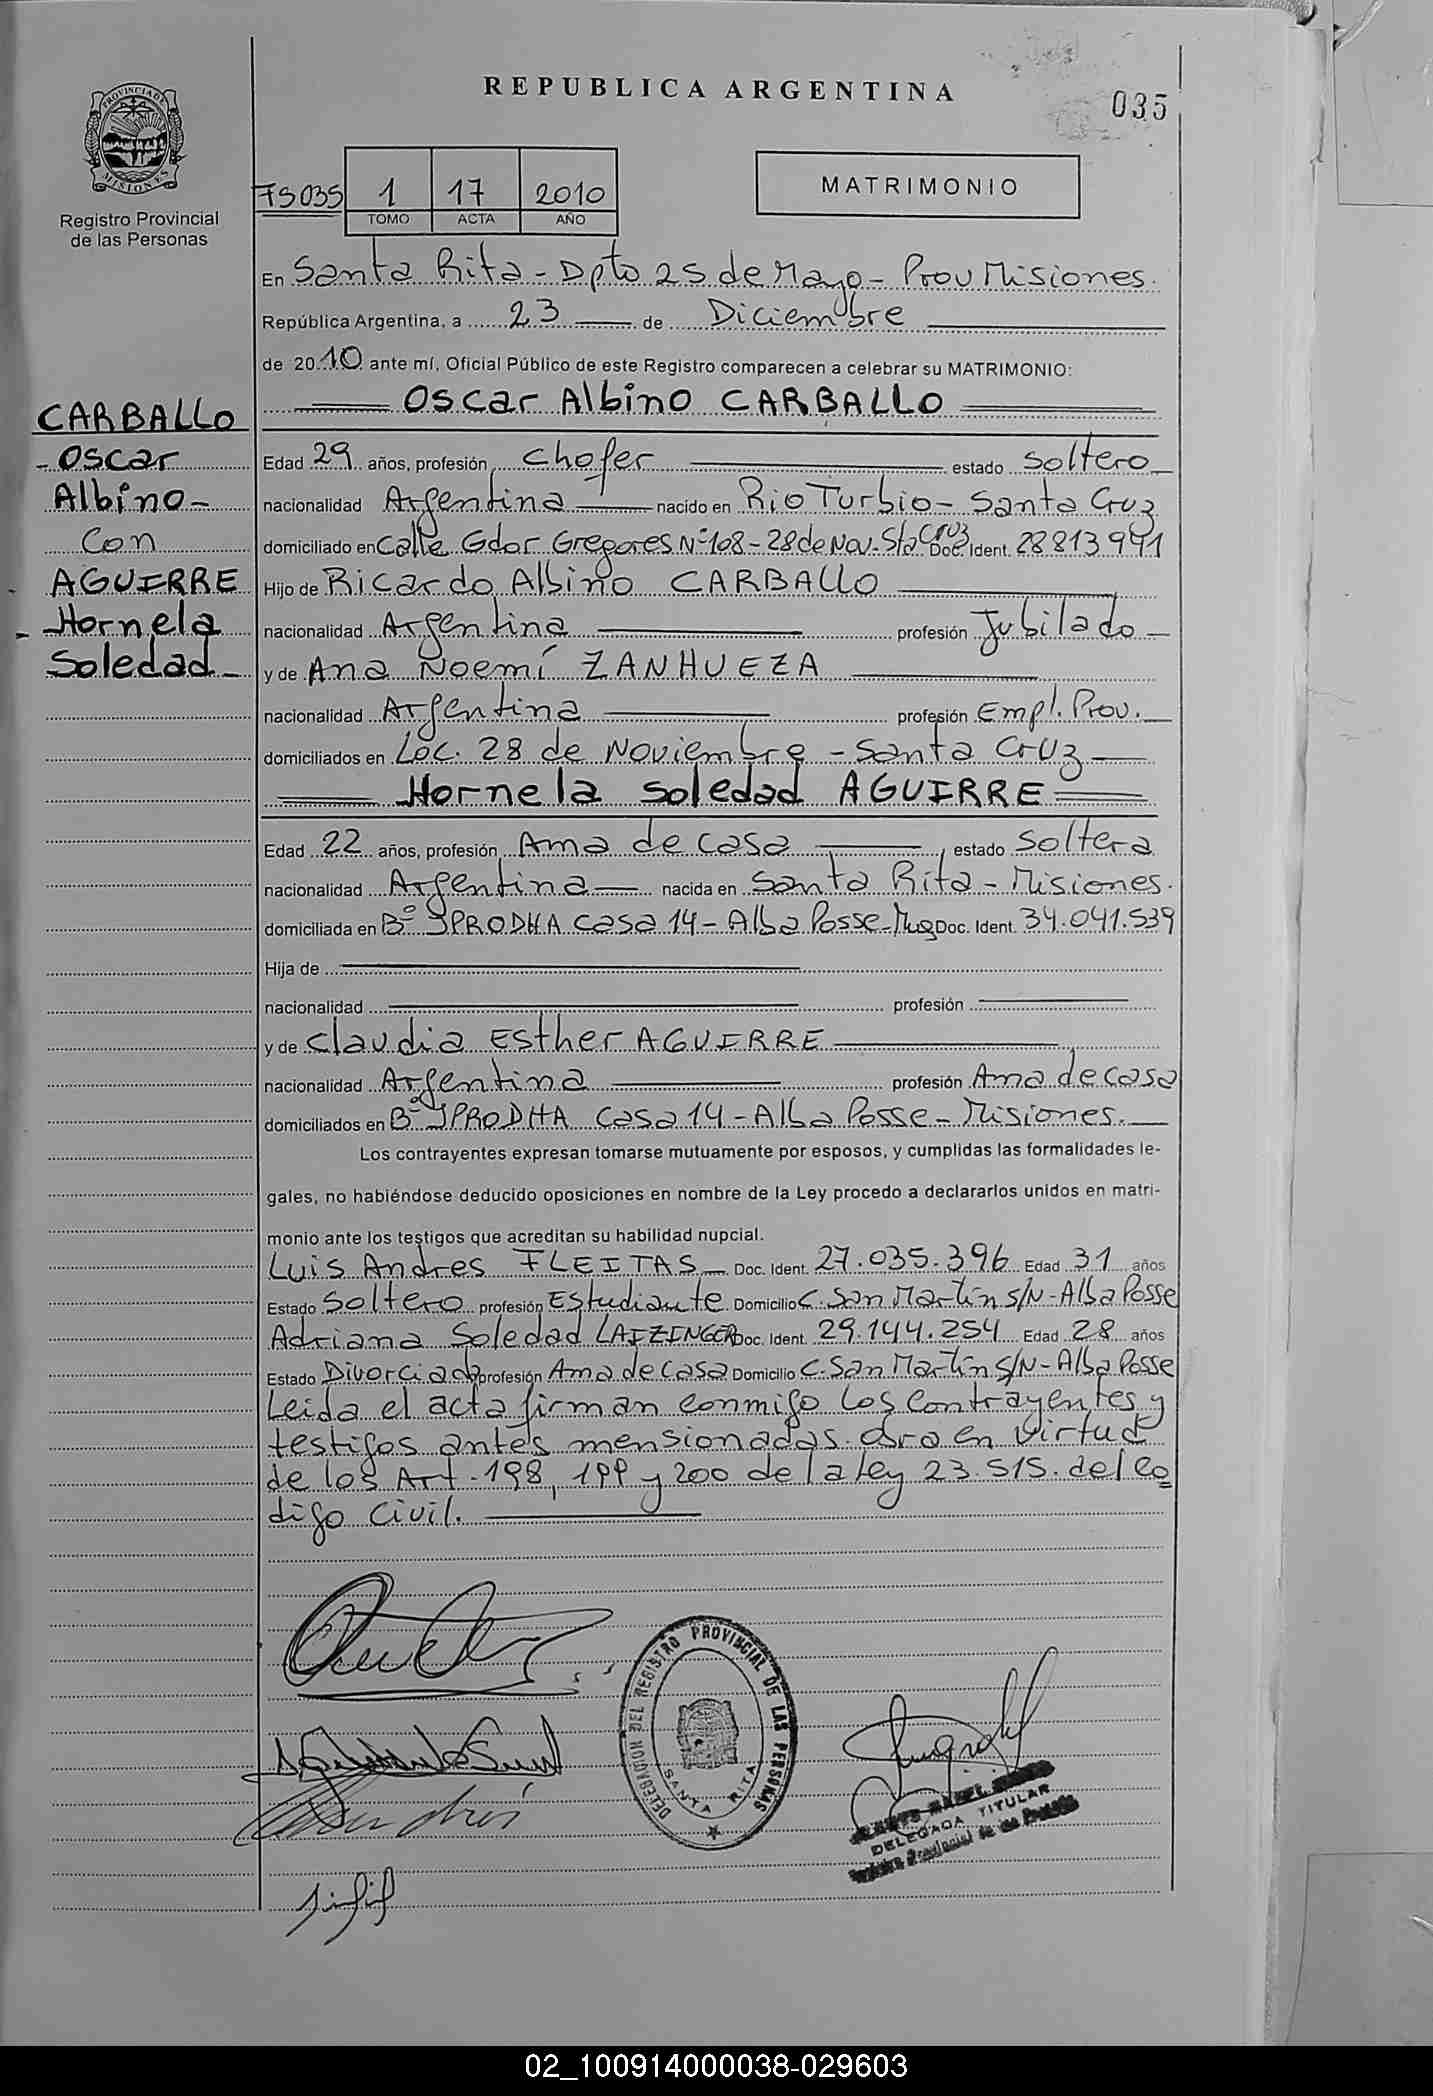 REPUBLICA ARGENTINA
035
PROVINCIA DE
MISIONES
Registro Provincial
de las Personas
75035
1 17 2010
TOMO ACTA AÑO
MATRIMONIO
En Santa Rita - Dpto 25 de Mayo - Prov Misiones.
República Argentina, a 23 de Diciembre
de 2010 ante mí, Oficial Público de este Registro comparecen a celebrar su MATRIMONIO:
CARBALLO
Oscar
Albino -
Con
AGUIRRE
- Hornela
Soledad -
Oscar Albino CARBALLO
Edad 29 años, profesión Chofer estado Soltero
nacionalidad Argentina nacido en Rio Turbio - Santa Cruz
domiciliado en Calle Gdor Gregores Nº 108 - 28 de Nov. Sta Cruz Doc. Ident. 28813941
Hijo de Ricardo Albino CARBALLO
nacionalidad Argentina profesión Jubilado
y de Ana Noemí ZANHUEZA
nacionalidad Argentina profesión Empl. Prov.
domiciliados en Loc. 28 de Noviembre - Santa Cruz
Hornela Soledad AGUIRRE
Edad 22 años, profesión Ama de casa estado Soltera
nacionalidad Argentina nacida en Santa Rita - Misiones.
domiciliada en Bº IPRODHA Casa 14 - Alba Posse - Doc. Ident. 34.041.539
Hija de
nacionalidad profesión
y de Claudia Esther AGUIRRE
nacionalidad Argentina profesión Ama de casa
domiciliados en Bº IPRODHA Casa 14 - Alba Posse - Misiones.
Los contrayentes expresan tomarse mutuamente por esposos, y cumplidas las formalidades le-
gales, no habiéndose deducido oposiciones en nombre de la Ley procedo a declararlos unidos en matri-
monio ante los testigos que acreditan su habilidad nupcial.
Luis Andres FLEITAS Doc. Ident. 27.035.396 Edad 31 años
Estado Soltero profesión Estudiante Domicilio C. San Martín s/N - Alba Posse
Adriana Soledad LAIZINGER Doc. Ident. 29.144.254 Edad 28 años
Estado Divorciada profesión Ama de casa Domicilio C. San Martin s/N - Alba Posse
Leida el acta firman conmigo los contrayentes y
testigos antes mensionados. en virtud
de los Art. 198, 199 y 200 de la Ley 23.515. del Co
digo Civil.
DELEGACION DEL REGISTRO PROVINCIAL DE LAS PERSONAS
SANTA RITA
DELEGADA TITULAR
02_100914000038-029603